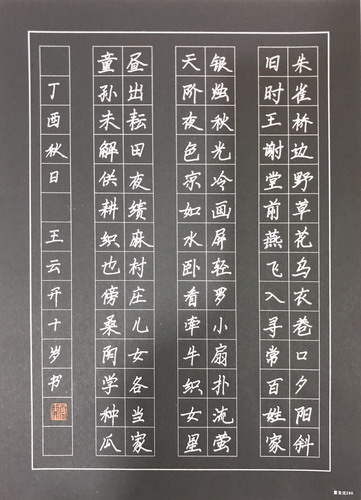 朱雀桥边野草花乌衣巷口夕阳斜
旧时王谢堂前燕飞入寻常百姓家
银烛秋光冷画屏轻罗小扇扑流萤
天阶夜色凉如水卧看牵牛织女星
昼出耘田夜绩麻村庄儿女各当家
童孙未解供耕织也傍桑阴学种瓜
丁酉秋日 王云开十岁书